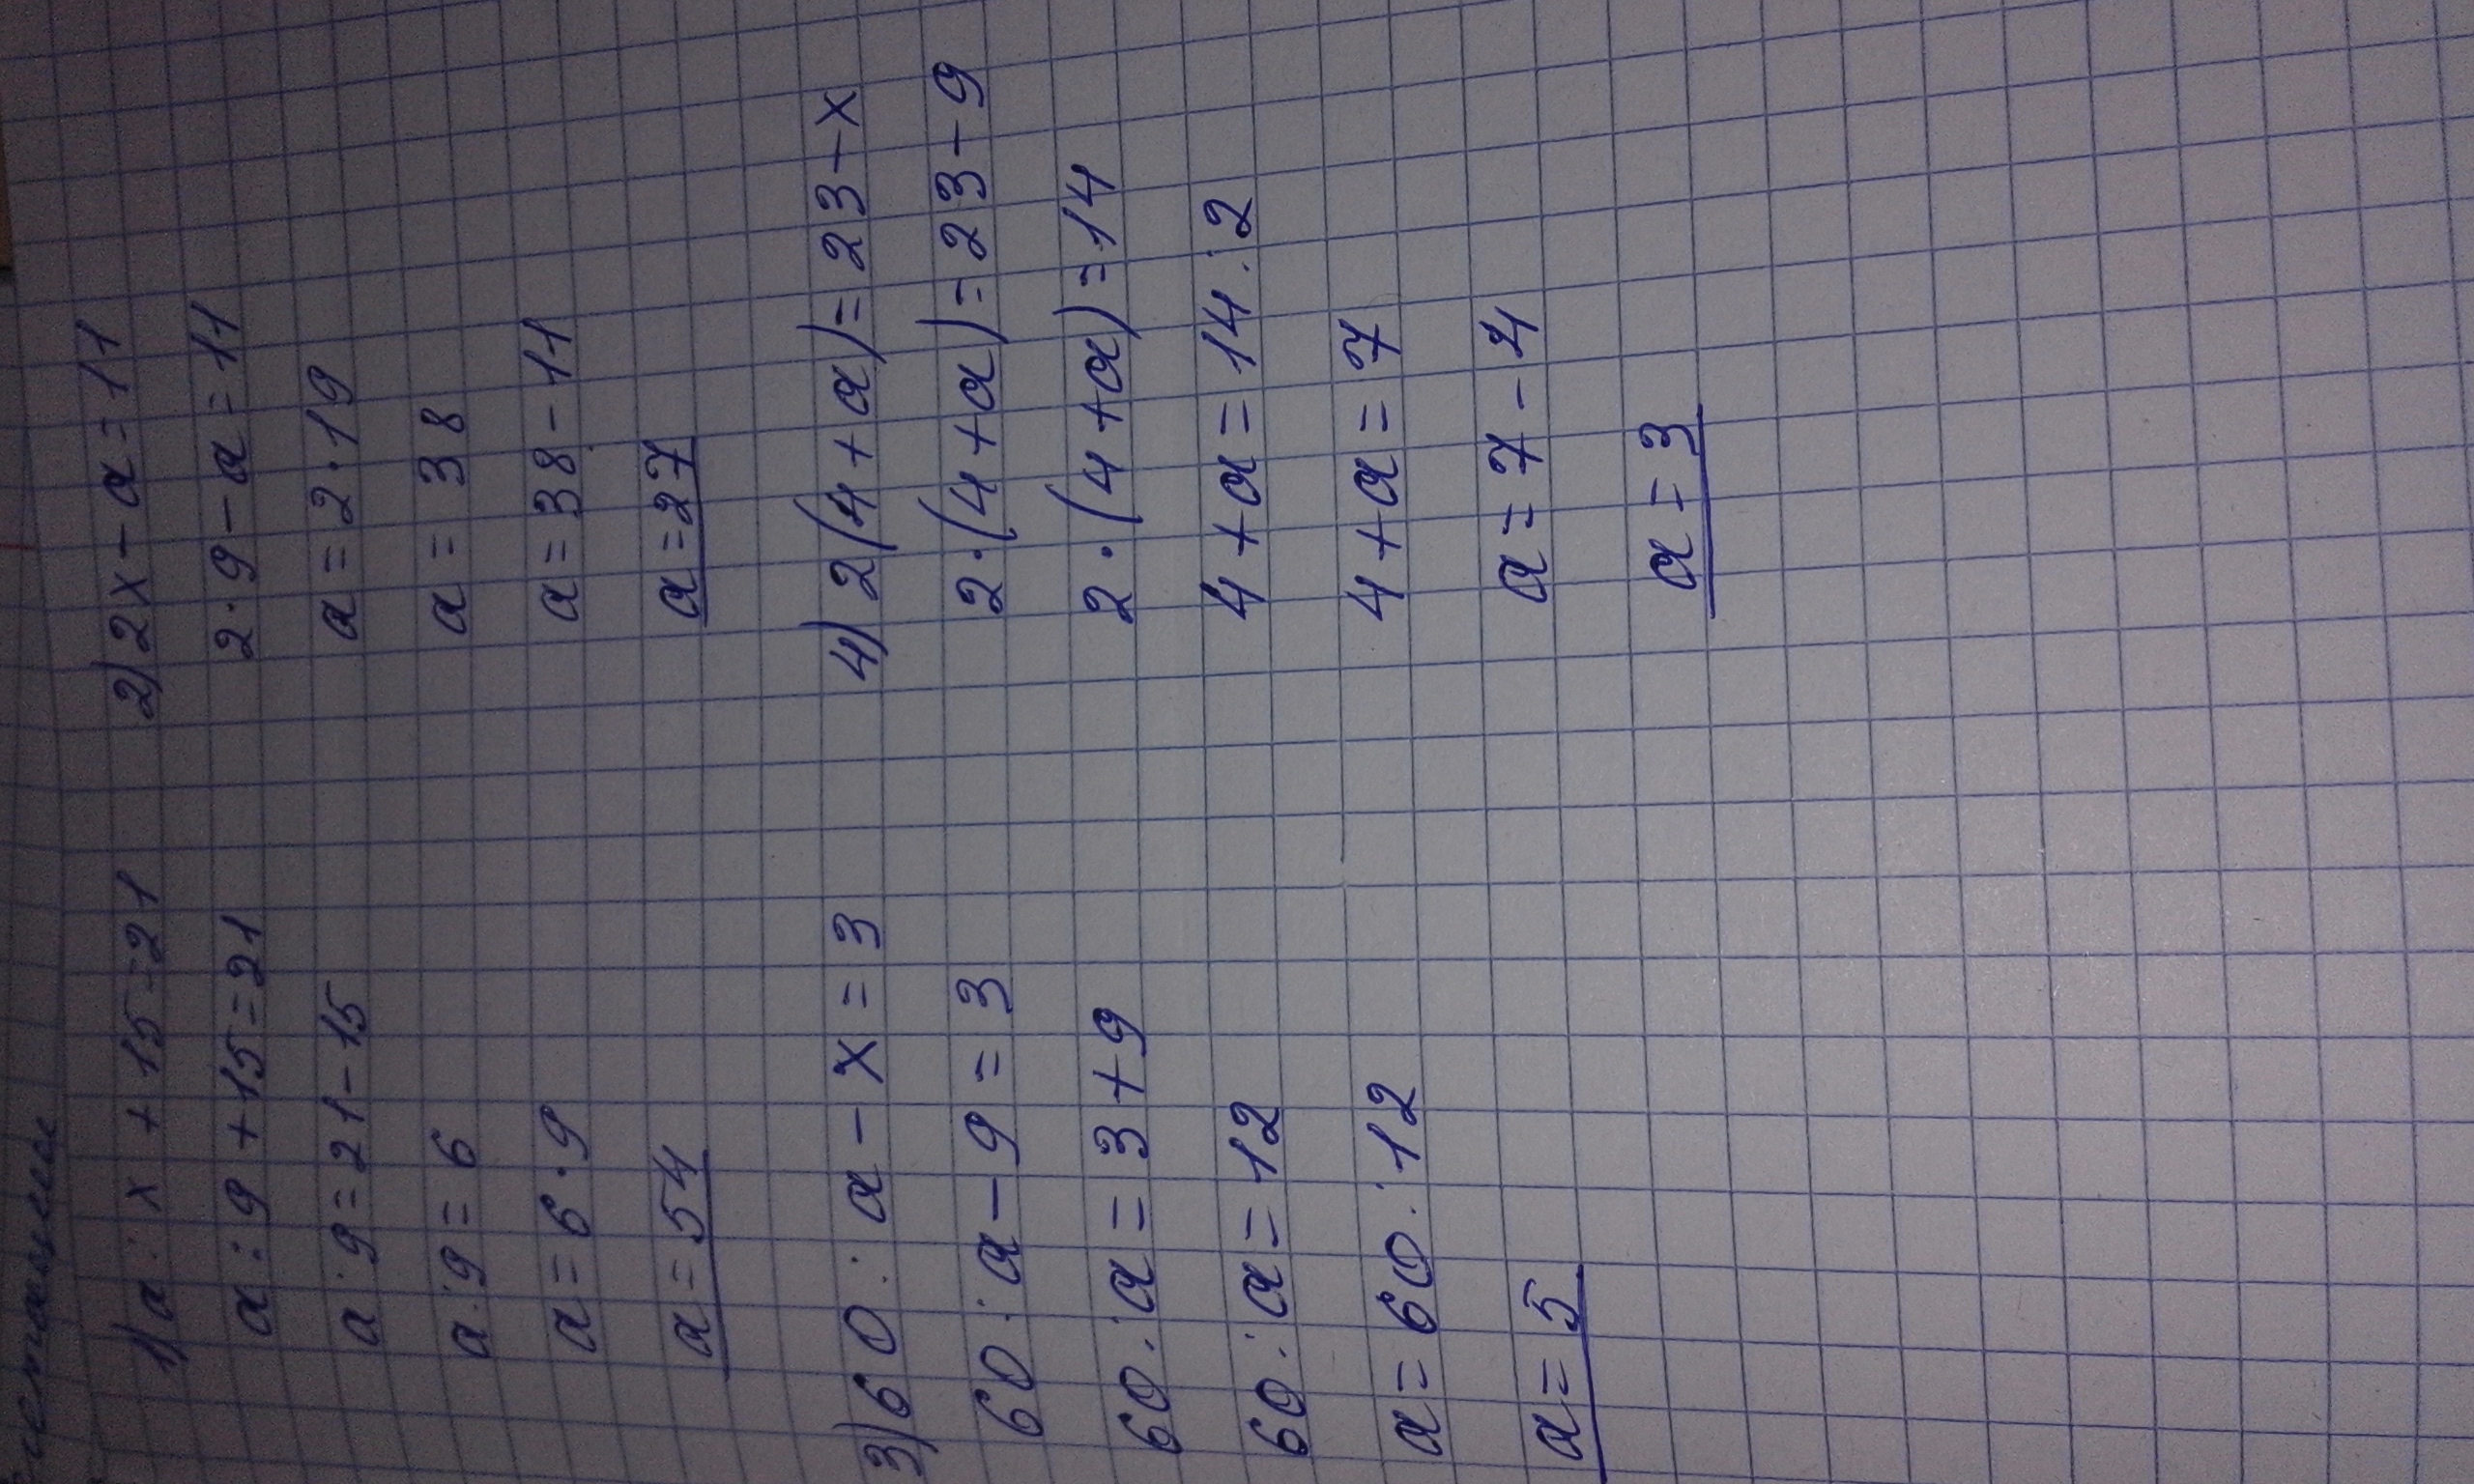 1) a : x + 15 = 21
a : 9 + 15 = 21
a : 9 = 21 - 15
a : 9 = 6
a = 6 · 9
a = 54
2) 2x - a = 11
2 · 9 - a = 11
a = 2 · 19
a = 38
a = 38 - 11
a = 27
3) 60 : a - x = 3
60 : a - 9 = 3
60 : a = 3 + 9
60 : a = 12
a = 60 : 12
a = 5
4) 2(4 + a) = 23 - x
2 · (4 + a) = 23 - 9
2 · (4 + a) = 14
4 + a = 14 : 2
4 + a = 7
a = 7 - 4
a = 3